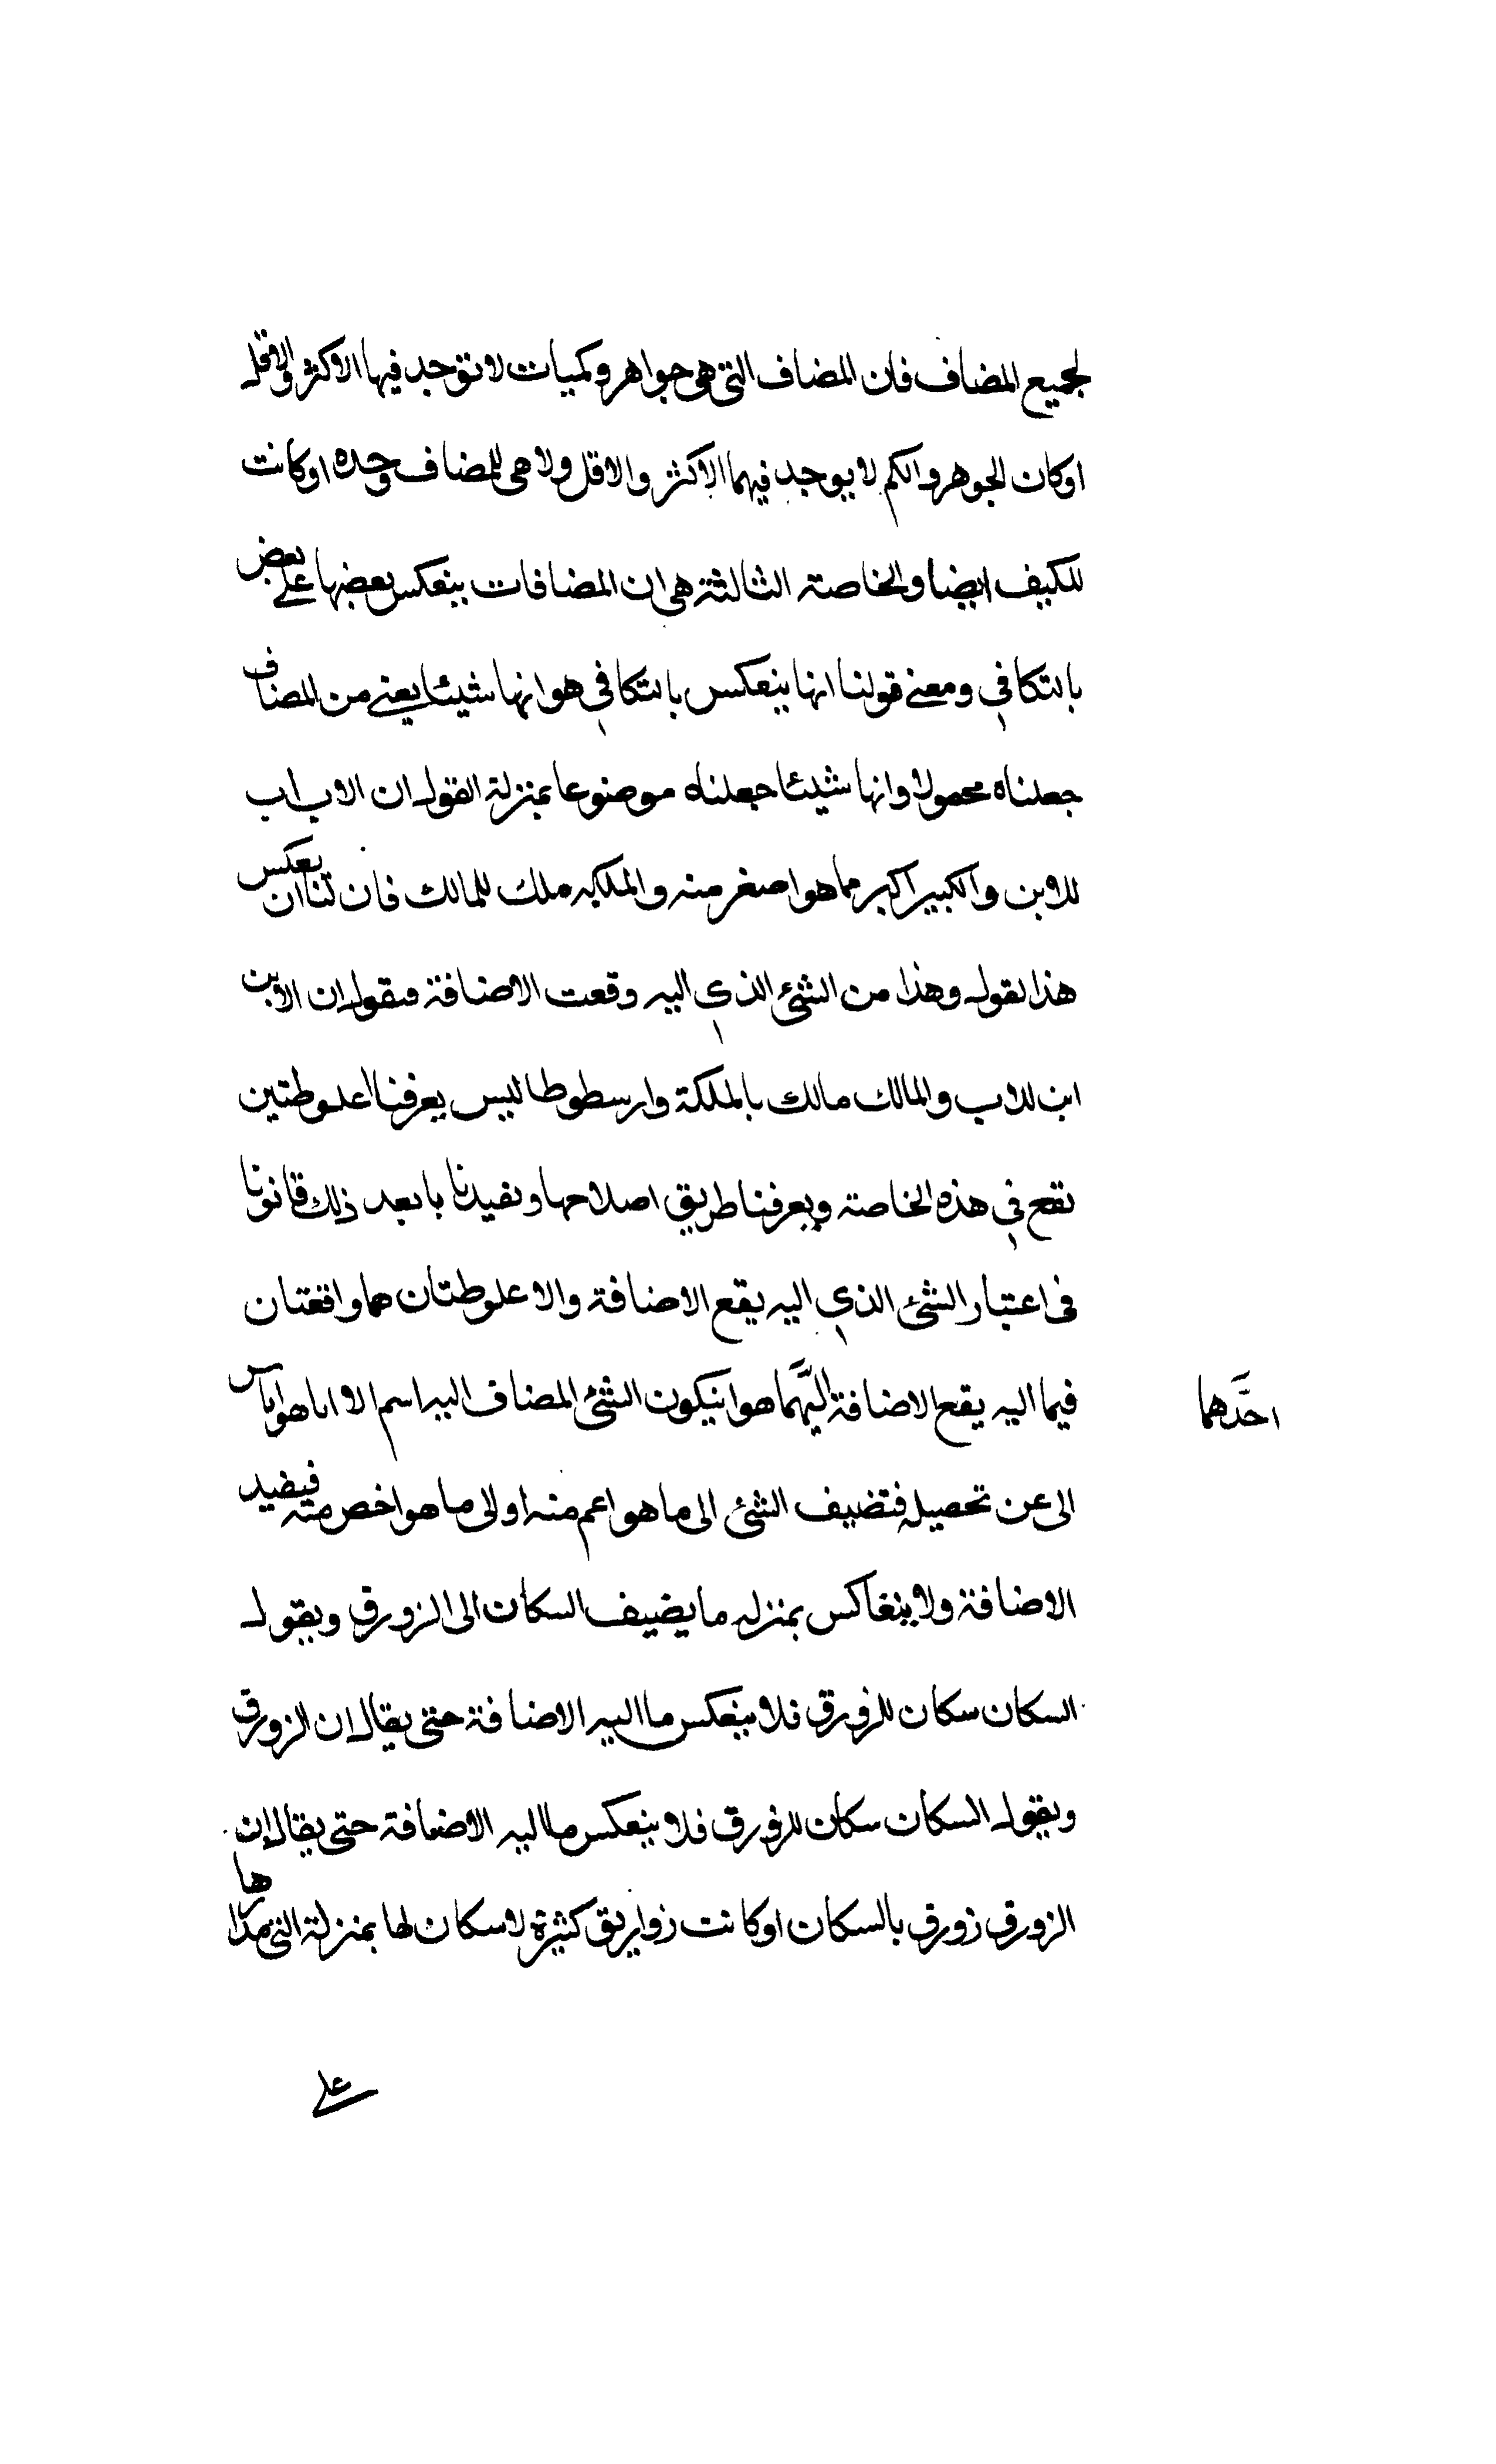 لجميع المضاف فان المضاف التي هي جواهر وكميات لا توجد فيها الاكثر والاقل
اوكان الجوهر والكم لا يوجد فيهما الاكثر والاقل ولا هي للمضاف وحده اوكانت
للكيف ايضا والخاصة الثالثة هي ان المضافات ينعكس بعضها على بعض
بالتكافي ومعنى قولنا انها ينعكس بالتكافي هو انها شيئا يعني من المضاف
جعلناه محمولا وانها شيئا جعلناه موضوعا بمنزلة القول ان الاب اب
للابن والكبير اكبر مما هو اصغر منه والملكه ملك للمالك فان لنا ان يعكس
هذا لقول وهذا من الشئ الذي اليه وقعت الاضافة فيقول ان الابن
ابن للاب والمالك مالك بالملكة وارسطوطاليس يعرفنا اعلوطتين
تقع في هذه الخاصة ويعرفنا طريق اصلاحها ويفيدنا بابعد ذلك قانونا
في اعتبار الشئ الذي اليه يقع الاضافة والاعلوطتان هما واقعتان
فيما اليه يقع الاضافة اليهما هو انيكون الشئ المضاف اليه اسم الا انا هو اناس
احدهما
الى عن تحصيله فتضيف الشئ الى ما هو اعم منه او الى ما هو اخص منه فيفيد
الاضافة ولا ينعاكس بمنزله ما يضيف السكان الى الزورق ويقول
السكان سكان للزورق فلا ينعكس ما اليه الاضافة حتى يقال ان الزورق
ويقول السكان سكان للزورق فلا ينعكس ما اليه الاضافة حتى يقال ان
الزورق زورق بالسكان اوكانت زواريق كثيرة لا سكان لها بمنزلة التي مدارها
على